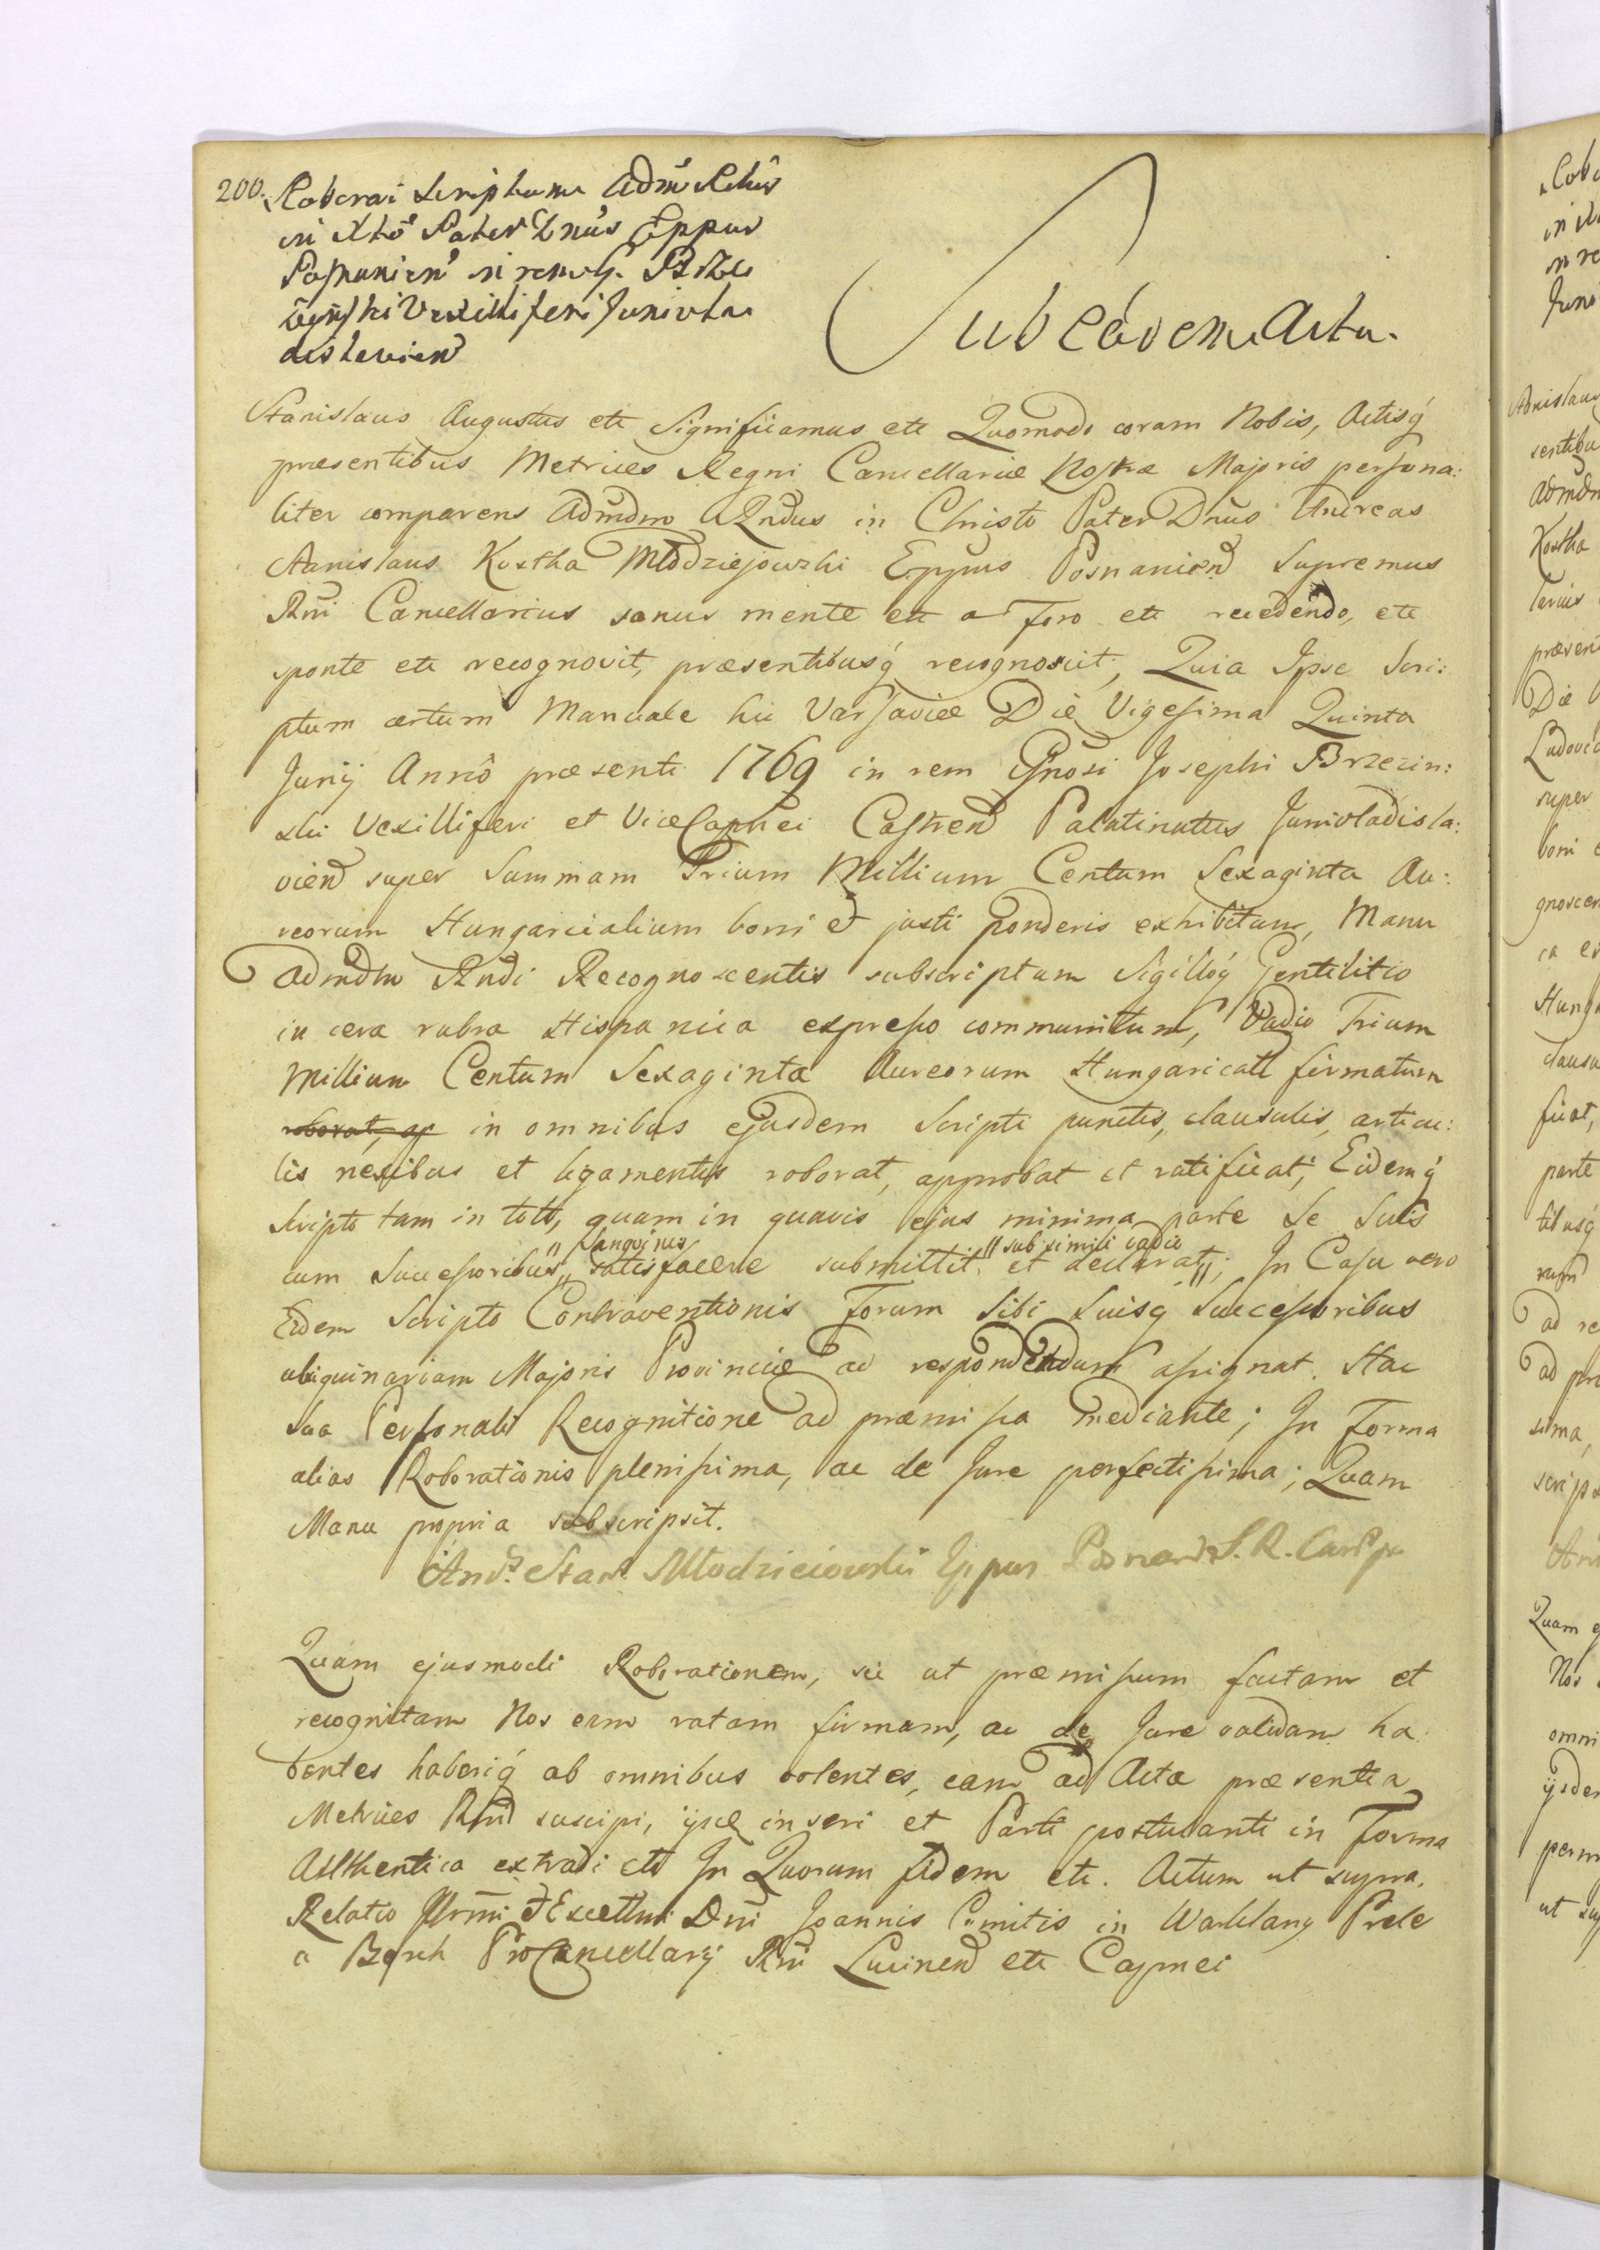 200. Roborat Scriptum Admº Rndus
in Xtô Pater Dnus Eppus
Posnanien in rem G. Brze
zinski Vexilliferi Junivla
dislavien
Sub eadem Actu.
Stanislaus Augustus etc Significamus etc Quomodo coram Nobis, Actisq́
præsentibus Metrices Regni Cancellariæ Nostræ Majoris persona:
liter comparens Admdm Rndus in Christo Pater Dnus Andreas
Stanislaus Kostka Młodziejowski Eppus Posnanien Supremus
Rni Cancellarius sanus mente etc a Foro etc recedendo, etc
sponte etc recognovit, præsentibusq́ recognoscit; Quia Ipse Scri:
ptum certum Manuale hic Varsaviæ Die Vigesima Quinta
Junij Anno præsenti 1769 in rem Gnosi Josephi Brzezin:
ski Vexilliferi et ViceCapnei Castren Palatinatus Junivladisla:
vien super Summam Trium Millium Centum Sexaginta Au:
reorum Hungaricalium boni et justi ponderis exhibitum, Manu
Admdm Rndi Recognoscentis subscriptum Sigilloq́ Gentilitio
in cera rubra Hispanica expresso communitum, Vadio Trium
Millium Centum Sexaginta Aureorum Hungarical firmatum
roborat, ap in omnibus ejusdem Scripti punctis, clausulis, articu:
lis nexibus et ligamentis roborat, approbat et ratificat; Eidemq́
Scripto tam in toto, quam in quavis ejus minima parte Se Suis
cum Successoribus " Sanguineis satisfacere submittit " sub simili vadio et declarat "; In Casu vero
Eidem Scripto Contraventionis Forum Sibi Suisq Successoribus
ubiquinariam Majoris Provinciæ ad respondendum assignat. Hac
Sua Personali Recognitione ad præmissa mediante; In Forma
alias Roborationis plenissima, ac de Jure perfectissima; Quam
Manu propria subscripsit.
And. Stan. Młodzieiowski Eppus Posnan S. R. Canc
Quam ejusmodi Roborationem, sic ut præmissum factam et
recognitam Nos eam ratam firmam, ac de Jure validam ha
bentes haberiq́ ab omnibus volentes, eam ad Acta præsentia
Metrices Rni suscipi, ijsq inseri et Parti postulanti in Forma
Authentica extradi etc In Quorum fidem etc. Actum ut supra.
Relatio Illrmi et Excellmi Dni Joannis Comitis in Warklany Prele
a Borch ProCancellarij Rni Lucinen etc Capnei